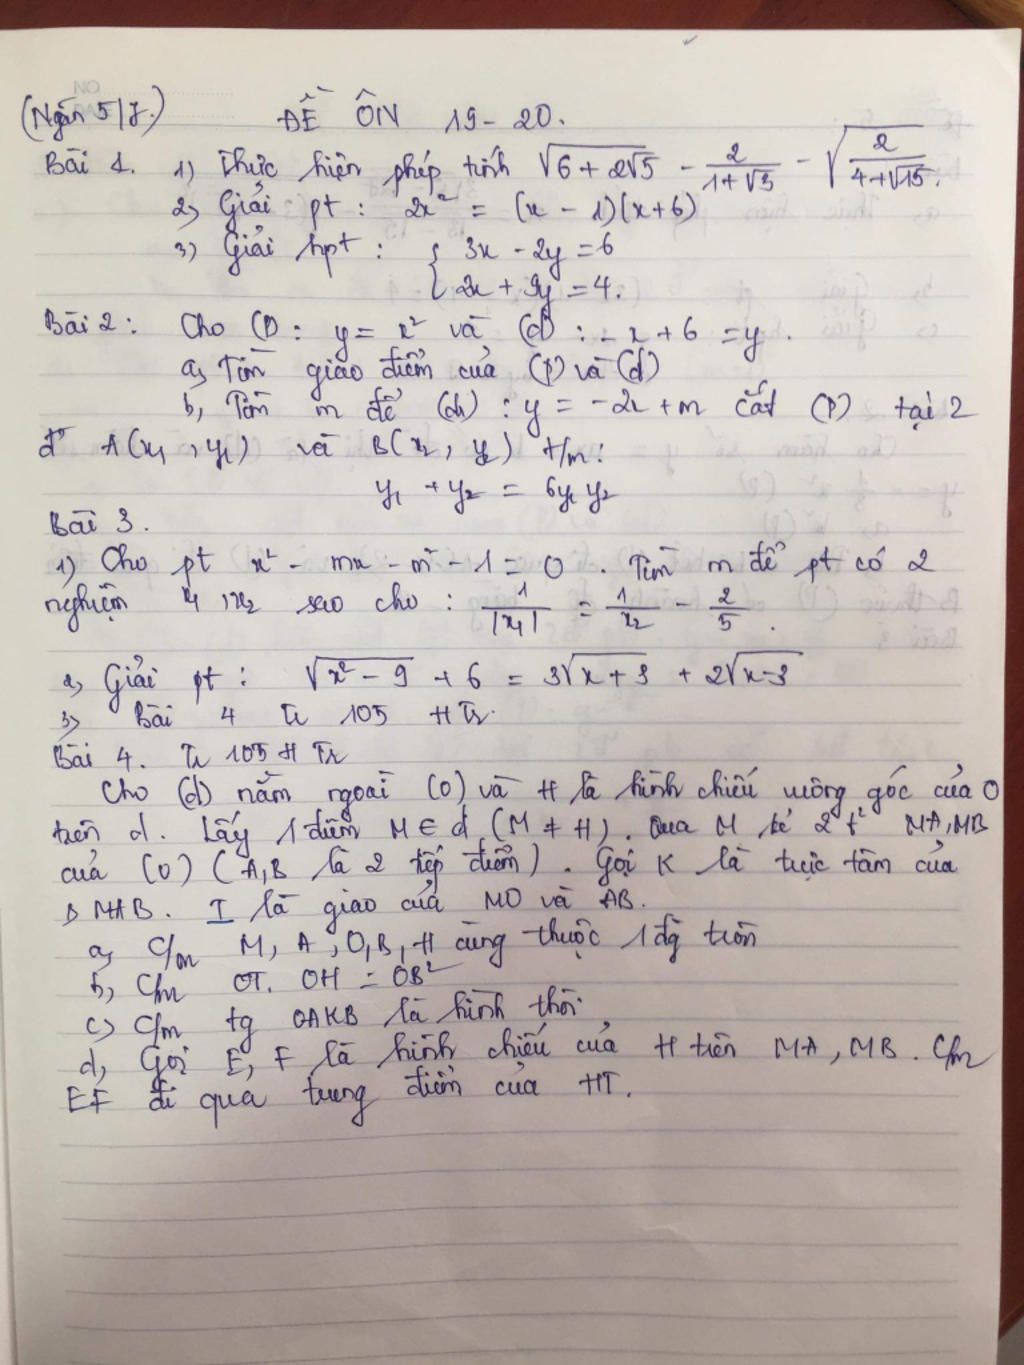 (Ngân 5/7.) ĐỀ ÔN 19-20.
Bài 1. 1) Thực hiện phép tính √(6+2√5) - 2/(1+√3) - √(2/(4+√15)).
2) Giải pt : 2x² = (x - 1)(x+6)
3) Giải hpt : { 3x - 2y = 6
2x + 9y = 4.
Bài 2: Cho (P): y = x² và (d) : - x + 6 = y .
a, Tìm giao điểm của (P) và (d)
b, Tìm m để (d₁) : y = -2x + m cắt (P) tại 2
đ² A(x₁ , y₁) và B(x₂ , y₂) t/m:
y₁ + y₂ = 6y₁ y₂
Bài 3.
1) Cho pt x² - mx - m² - 1 = 0 . Tìm m để pt có 2
nghiệm x₁ , x₂ sao cho : 1/|x₁| = 1/x₂ - 2/5 .
2, Giải pt : √(x² - 9) + 6 = 3√(x+3) + 2√(x-3)
3) Bài 4 Tr 105 HTr.
Bài 4. Tr 105 HTr
Cho (d) nằm ngoài (O) và H là hình chiếu vuông góc của O
trên d. Lấy 1 điểm M ∈ d (M ≠ H). Qua M kẻ 2 t² MA, MB
của (O) (A,B là 2 tiếp điểm). Gọi K là trực tâm của
Δ MAB. I là giao của MO và AB.
a, C/m M, A, O, B, H cùng thuộc 1 đg tròn
b, C/m OT. OH = OB²
c) C/m tg OAKB là hình thoi
d, Gọi E, F là hình chiếu của H trên MA, MB. C/m
EF đi qua trung điểm của HT.